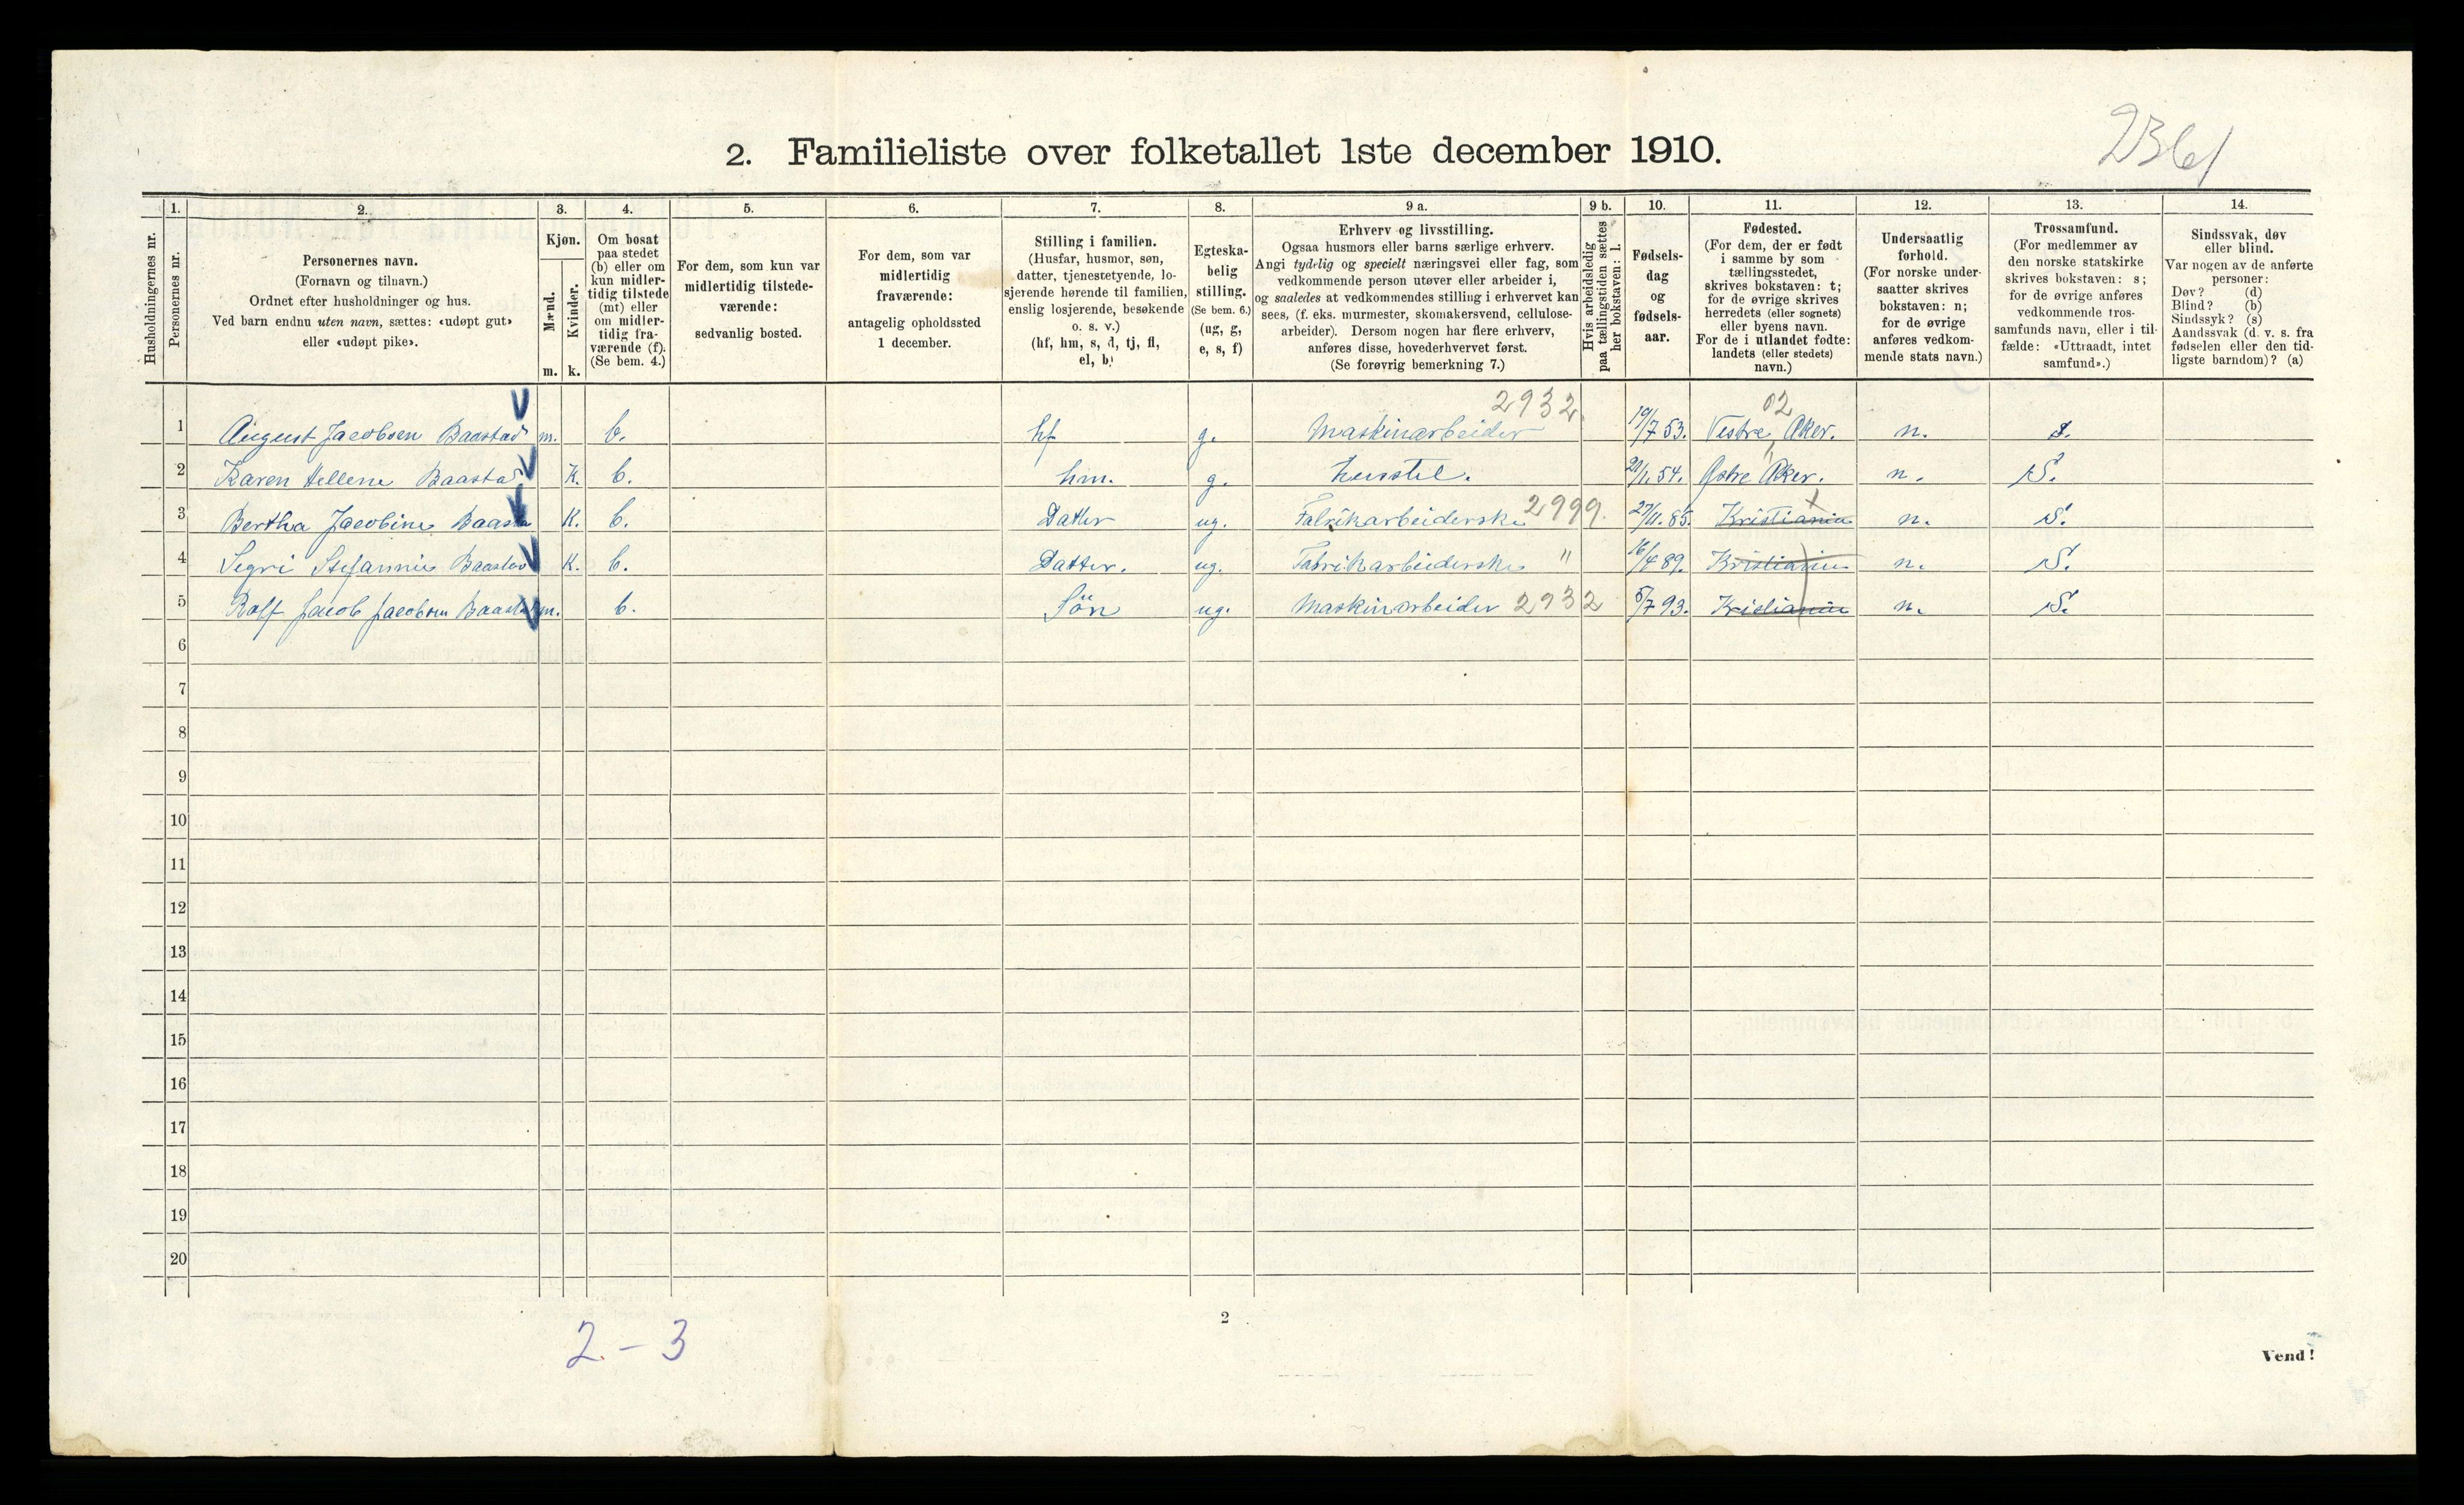 2361
2. Familieliste over folketallet 1ste december 1910.
Husholdningernes nr.
1. Personernes nr.
2. Personernes navn. (Fornavn og tilnavn.) Ordnet efter husholdninger og hus. Ved barn endnu uten navn, sættes: «udøpt gut» eller «udøpt pike».
3. Kjøn. Mænd. m. Kvinder. k.
4. Om bosat paa stedet (b) eller om kun midler- tidig tilstede (mt) eller om midler- tidig fra- værende (f). (Se bem. 4.)
5. For dem, som kun var midlertidig tilstede- værende: sedvanlig bosted.
6. For dem, som var midlertidig fraværende: antagelig opholdssted 1 december.
7. Stilling i familien. (Husfar, husmor, søn, datter, tjenestetyende, lo- sjerende hørende til familien, enslig losjerende, besøkende o. s. v.) (hf, hm, s, d, tj, fl, el, b)
8. Egteska- belig stilling. (Se bem. 6.) (ug, g, e, s, f)
9 a. Erhverv og livsstilling. Ogsaa husmors eller barns særlige erhverv. Angi tydelig og specielt næringsvei eller fag, som vedkommende person utøver eller arbeider i, og saaledes at vedkommendes stilling i erhvervet kan sees, (f. eks. murmester, skomakersvend, cellulose- arbeider). Dersom nogen har flere erhverv, anføres disse, hovederhvervet først. (Se forøvrig bemerkning 7.)
9 b. Hvis arbeidsledig paa tællingstiden sættes her bokstaven: l.
10. Fødsels- dag og fødsels- aar.
11. Fødested. (For dem, der er født i samme by som tællingsstedet, skrives bokstaven: t; for de øvrige skrives herredets (eller sognets) eller byens navn. For de i utlandet fødte: landets (eller stedets) navn.)
12. Undersaatlig forhold. (For norske under- saatter skrives bokstaven: n; for de øvrige anføres vedkom- mende stats navn.)
13. Trossamfund. (For medlemmer av den norske statskirke skrives bokstaven: s; for de øvrige anføres vedkommende tros- samfunds navn, eller i til- fælde: «Uttraadt, intet samfund».)
14. Sindssvak, døv eller blind. Var nogen av de anførte personer: Døv? (d) Blind? (b) Sindssyk? (s) Aandssvak (d. v. s. fra fødselen eller den tid- ligste barndom)? (a)
2932 02
1 August Jacobsen Baastad m. b. hf g. Maskinarbeider 19/7 53. Vestre Aker. n. s.
2 Karen Hellene Baastad K. b. hm. g. husstel. 54. Østre Aker. n. S.
3 Bertha Jacobine Baasta K. b. Datter ug. Fabrikarbeiderske 2999. 27/11. 85. Kristiania n. S.
4 Segri Stefannie Baastad K. b. Datter. ug. Fabrikarbeiderske " 16/4 89. Kristiania n. S.
5 Rolf Jacob Jacobsen Baastad m. b. Sön ug. Maskinarbeider 2932 5/7 93. Kristiania n. S.
6
7
8
9
10
11
12
13
14
15
16
17
18
19
20
2
2 - 3
Vend!